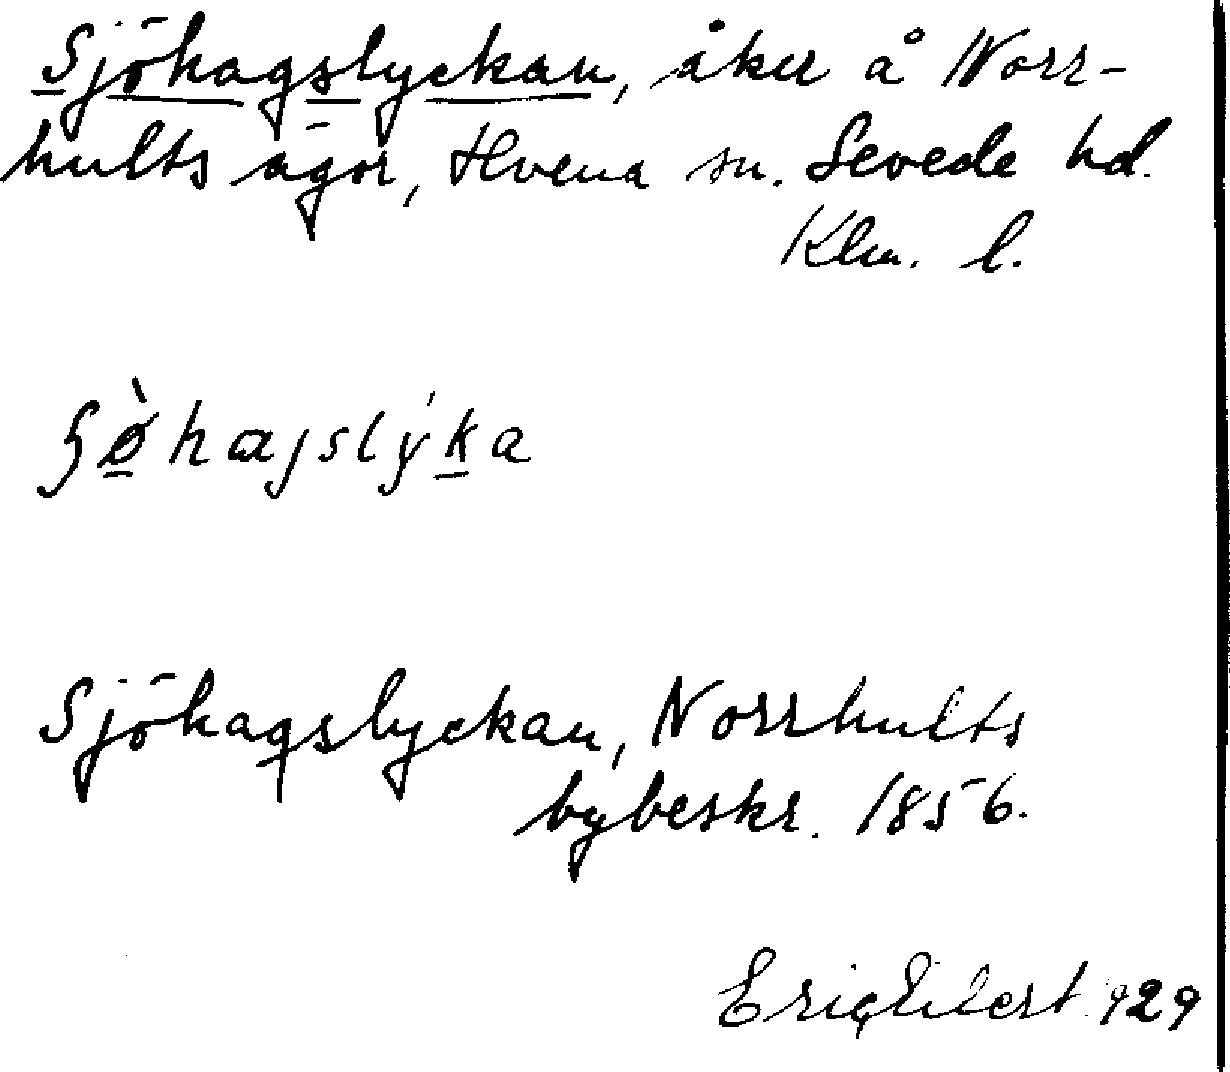 Sjöhagslyckan, åker å Norr-
hults ägor, Hvena sn. Sevede hd.
Klm. l.
Sjöhagslyckan, Norrhults
bybeskr. 1856.
Eric 1929